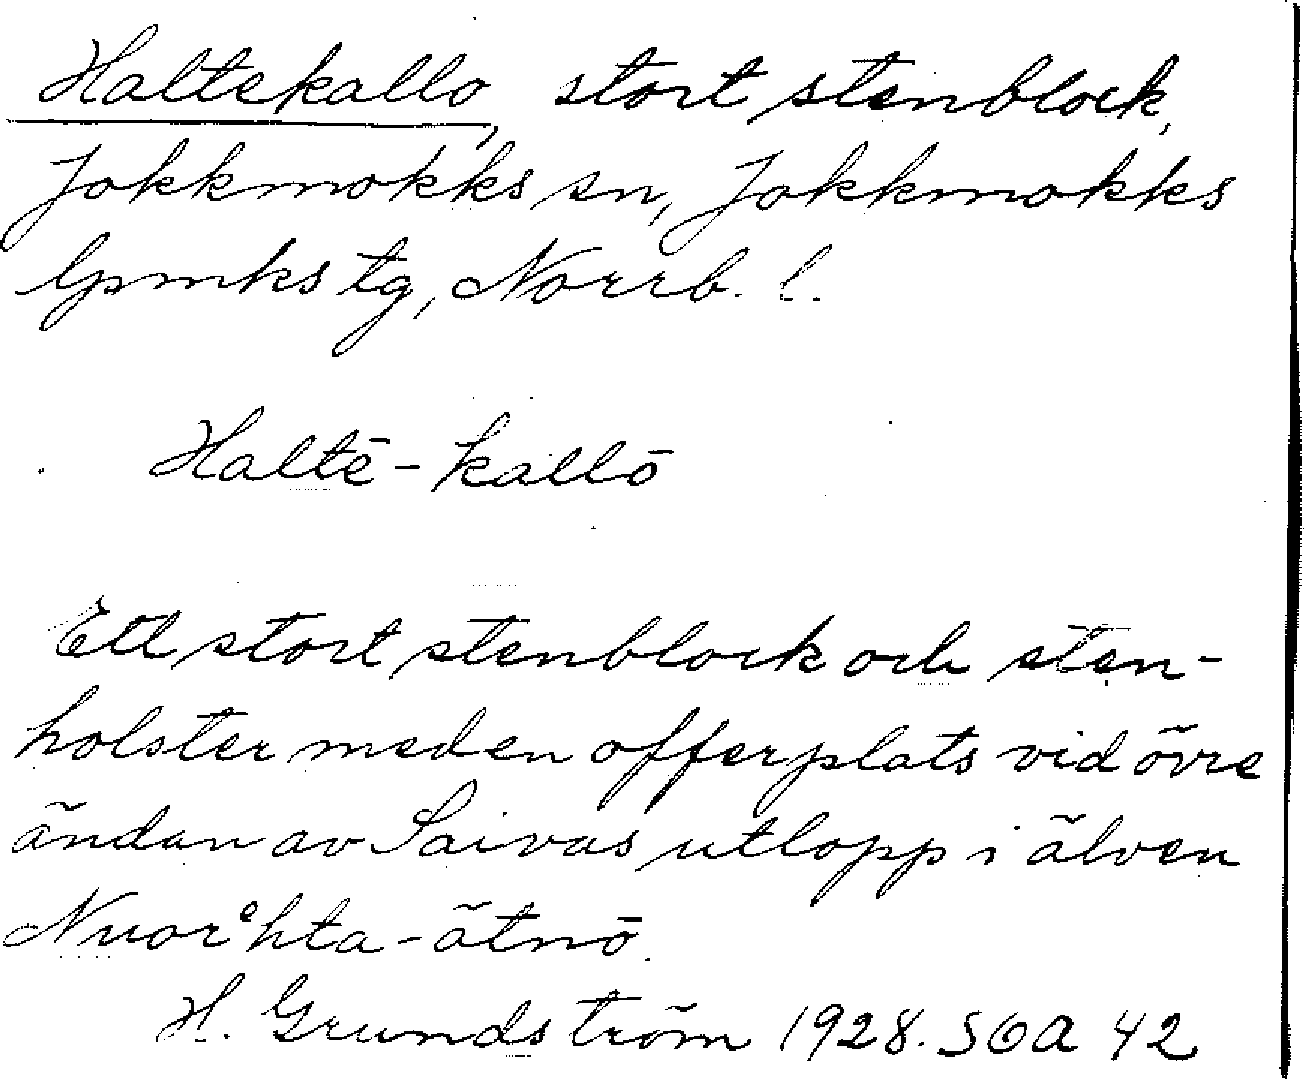 Haltekallo, stort stenblock,
Jokkmokks sn, Jokkmokks
lpmks tg, Norrb. l.
Haltē-kallō
Ett stort stenblock och sten-
holster med en offerplats vid övre
ändan av Saivas utlopp i älven
Nuorᵉhta-ätnō.
H. Grundström 1928. SOA 42